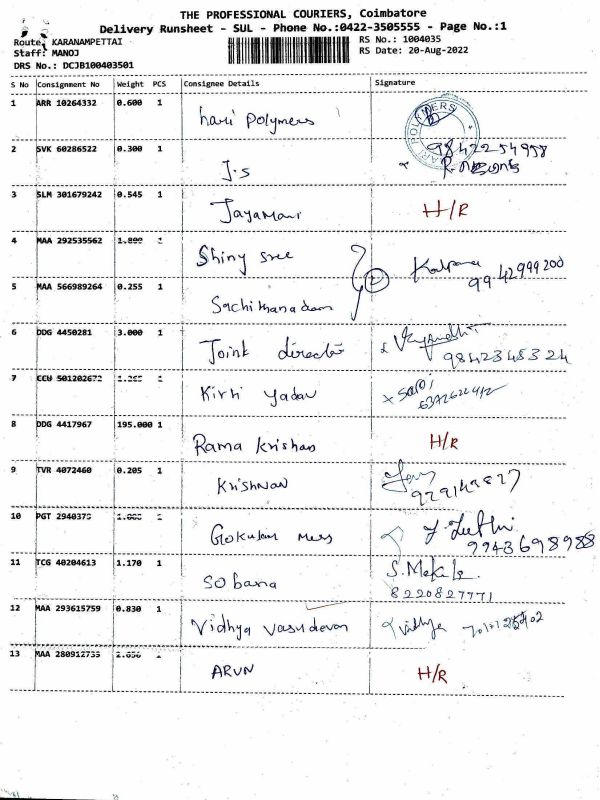 THE PROFESSIONAL COURIERS, Coimbatore
Delivery Runsheet - SUL - Phone No.:0422-3505555 - Page No.:1
Route: KARANAMPETTAI
RS No.: 1004035
Staff: MANOJ
RS Date: 20-Aug-2022
DRS No.: DCJB100403501
S No Consignment No Weight PCS Consignee Details Signature
1 ARR 10264332 0.600 1 hari polymers
2 SVK 60286522 0.300 1 J.S 9842254998
3 SLM 301679242 0.545 1 Jayamani H/R
4 MAA 292535562 Shiny sree Kalpana
5 MAA 566989264 0.255 1 2 9942999200
6 DDG 4450281 3.000 1 Joint director 9842348324
7 CCU 501202672 Kirti yadav
8 DDG 4417967 195.000 1 Rama Krishan H/R
9 TVR 4072460 0.205 1 Krishnan
10 Gokulam
11 TCG 40204613 1.170 1 Sobana 8220827771
12 MAA 293615759 0.830 1 Vidhya Vasudevan Vidhya
13 MAA 280912735 ARUN H/R